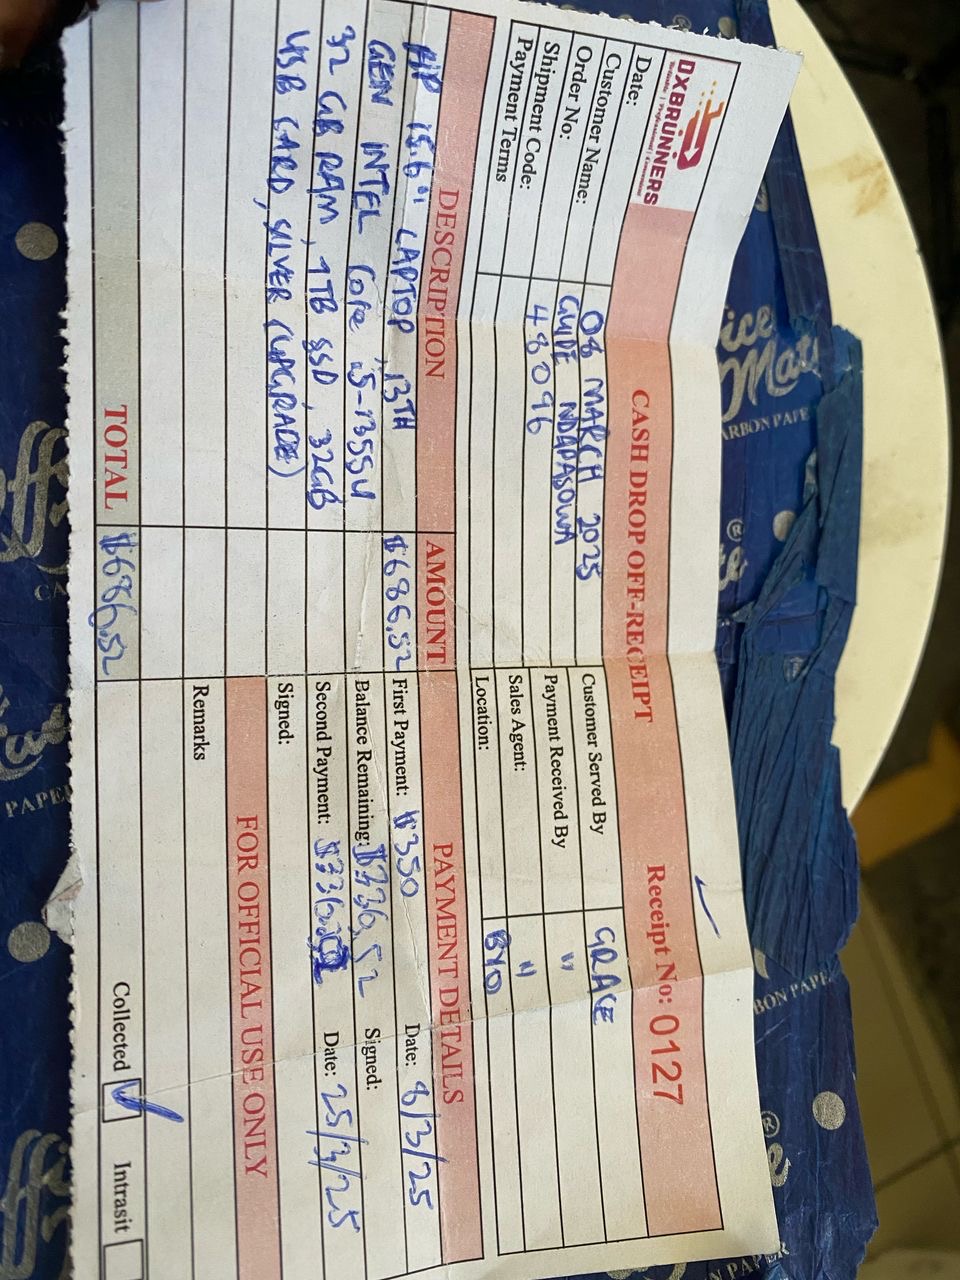 DXBRUNNERS
CASH DROP OFF-RECEIPT
Receipt No: 0127
Date: 08 MARCH 2025
Customer Name: GUIDE NDAPASOWA
Order No: 48096
Shipment Code:
Payment Terms
Customer Served By GRACE
Payment Received By "
Sales Agent: "
Location: BYO
DESCRIPTION AMOUNT PAYMENT DETAILS
HP 15.6" LAPTOP, 13TH $686.52
GEN INTEL Core i5-1355U
32 GB RAM, 1TB SSD, 32GB
USB CARD, SILVER (UPGRADE)
First Payment: $350 Date: 8/3/25
Balance Remaining: $336.52 Signed:
Second Payment: Date: 25/3/25
Signed:
FOR OFFICIAL USE ONLY
Remarks
TOTAL $686.52
Collected Intrasit
ice
Mate
ARBON PAPE
BON PAPE
N PAPER
CA
PAPE